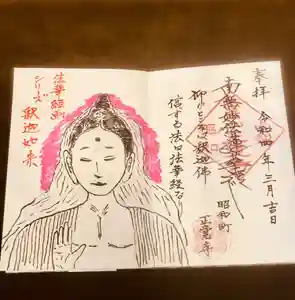 奉拝 令和四年三月吉日
南無妙法蓮華経
仰ぐところは釈迦佛
信ずる法は法華経なり
昭和町
正覚寺
法華経画
シリーズ
釈迦如来